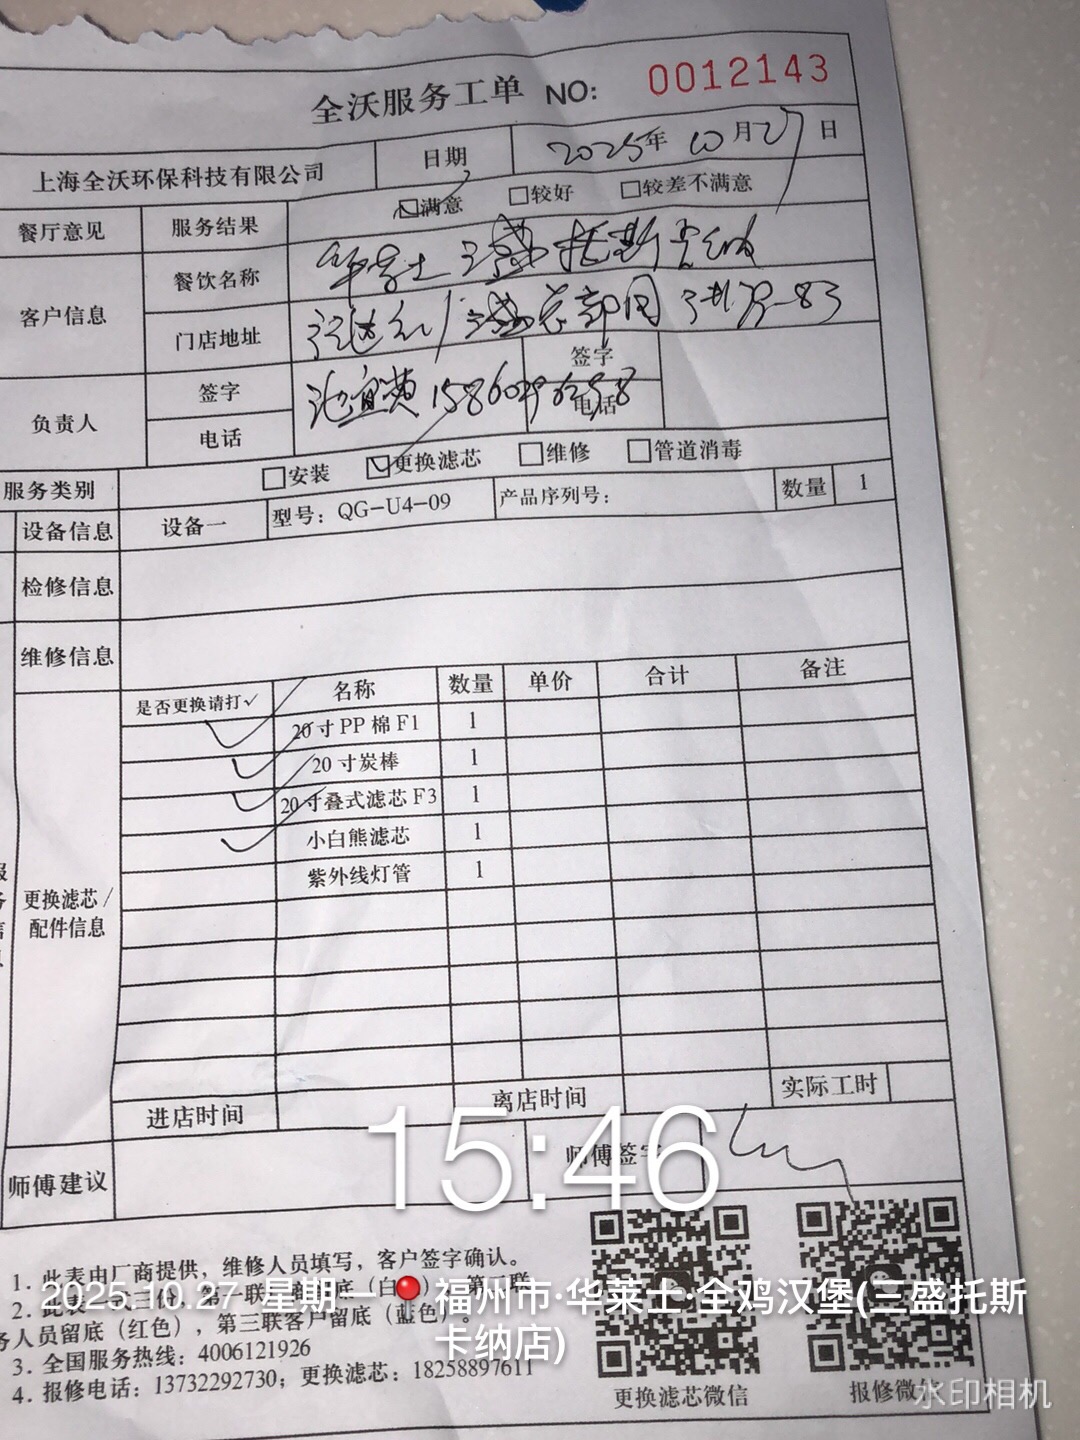 全沃服务工单 NO: 0012143
上海全沃环保科技有限公司 日期 2025年 10月27日
餐厅意见 服务结果 ☑满意 □较好 □较差不满意
客户信息 餐饮名称 华莱士三盛托斯卡纳
门店地址
负责人 签字 签字
电话 电话
服务类别 □安装 ☑更换滤芯 □维修 □管道消毒
设备信息 设备一 型号：QG-U4-09 产品序列号： 数量 1
检修信息
维修信息
更换滤芯/配件信息
是否更换请打✓ 名称 数量 单价 合计 备注
✓ 20寸PP棉F1 1
✓ 20寸炭棒 1
✓ 20寸叠式滤芯F3 1
✓ 小白熊滤芯 1
紫外线灯管 1
进店时间 离店时间 实际工时
师傅建议 师傅签字
15:46
1. 此表由厂商提供，维修人员填写，客户签字确认。
2. 此表
务人员留底（红色），第三联客户留底（蓝色）。
3. 全国服务热线：4006121926
4. 报修电话：13732292730；更换滤芯：18258897611
更换滤芯微信 报修微信
2025.10.27 星期一 福州市·华莱士·全鸡汉堡(三盛托斯
卡纳店)
水印相机